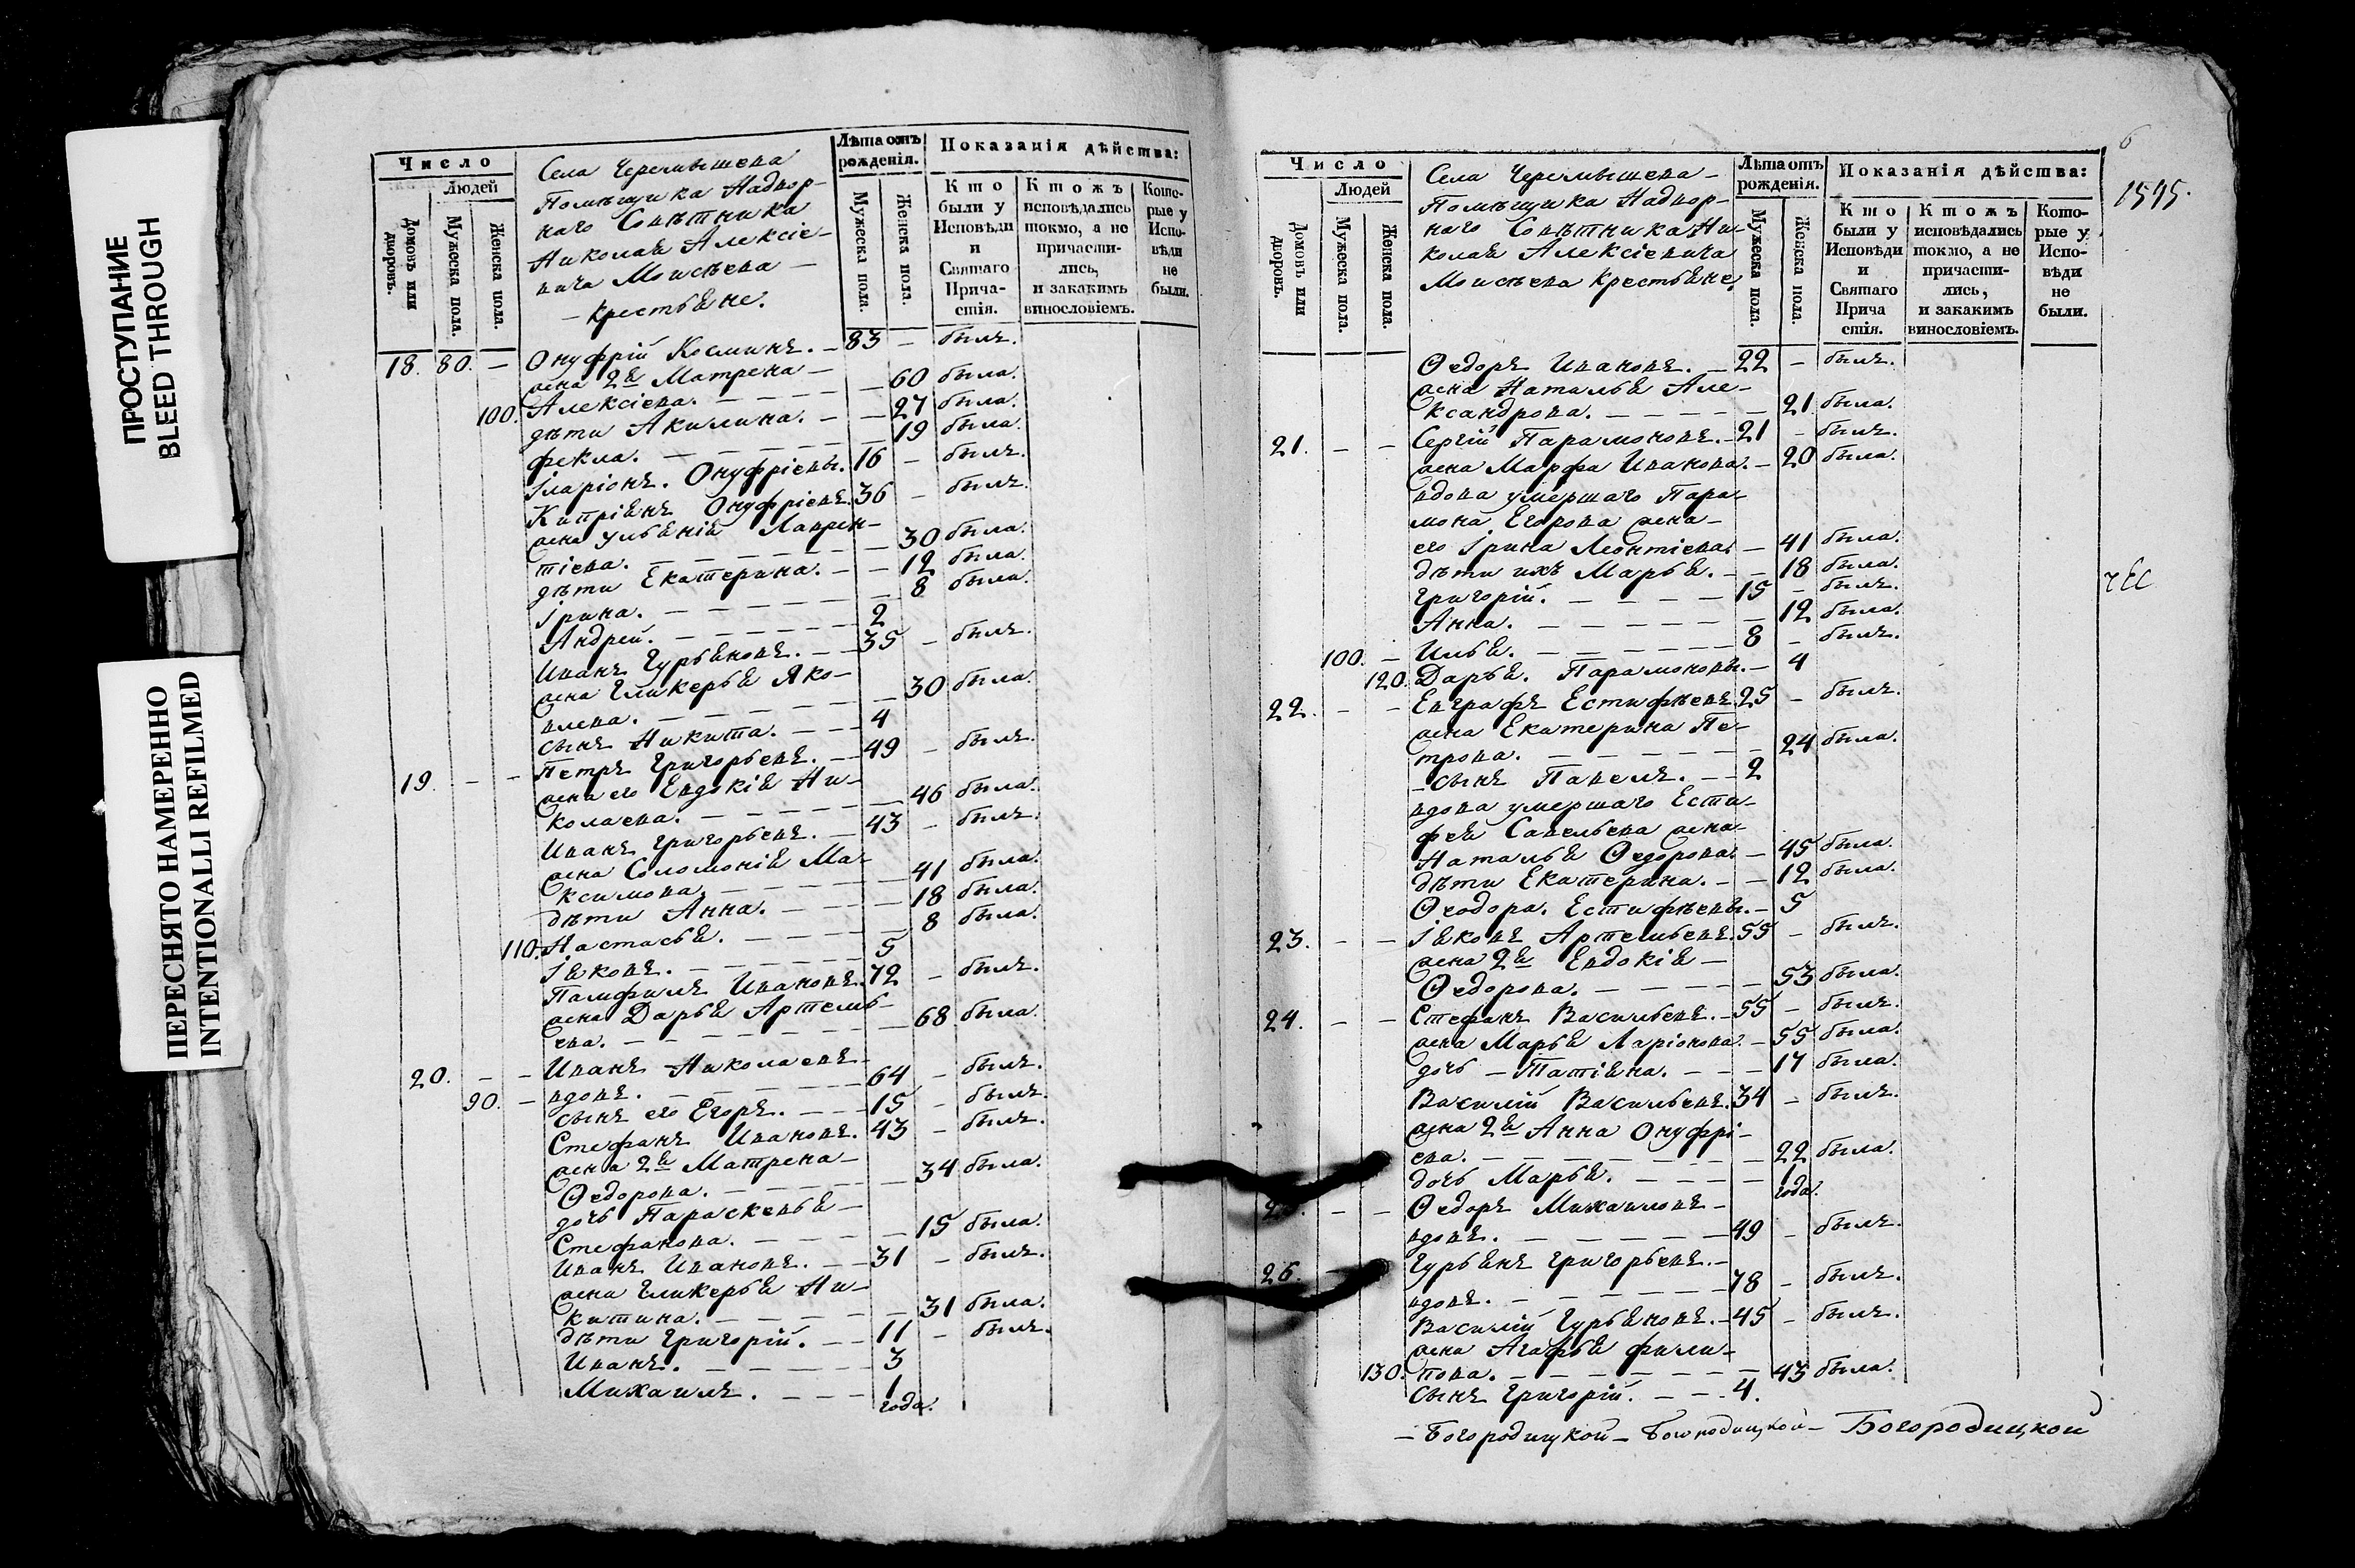 ПРОСТУПАНИЕ
BLEED THROUGH
ПЕРЕСНЯТО НАМЕРЕННО
INTENTIONALLI REFILMED
Число
Людей
Домовъ или дворовъ.
Мужеска пола.
Женска пола.
Села Черемышева
Помѣщика Надвор-
наго Совѣтника
Николая Алексіе-
вича Моисѣева —
— крестьяне.
Лѣта отъ рожденія.
Мужеска пола.
Женска пола.
Показанія дѣйства:
Кто были у Исповѣди и Святаго Прича-стія.
Ктожъ исповѣдались токмо, а не причасти-лись, и закакимъ винословіемъ.
Кото-рые у Испо-вѣди не были.
18. 80. — Онуфрій Косминъ. — 83 — былъ.
жена 2я Матрена —
100. Алексіева. — 60 была.
дѣти Акилина. — 27 была.
Фекла. — 19 была.
Іларіонъ. Онуфріевы. 16 — былъ.
Кипріянъ Онуфріевъ. 36 — былъ.
жена Ульянія Лаврен-
тіева. — 30 была.
дѣти Екатерина. — 12 была.
Ірина. — 8 была.
Андрей. — 2
Иванъ Гурьяновъ. — 35 — былъ.
жена Гликерья Яко-
влева. — 30 была.
сынъ Никита. — 4
19. — — Петръ Григорьевъ. — 49 — былъ.
жена его Евдокія Ни-
колаева. — 46 была.
Иванъ Григорьевъ. — 43 — былъ.
жена Соломонія Ма-
ксимова. — 41 была.
дѣти Анна. — 18 была.
110. Настасья. — 8 была.
Іяковъ. — 5
Памфилъ Ивановъ. 72 — былъ.
жена Дарья Артемь-
ева. — 68 была.
20. — — Иванъ Николаевъ —
90. — вдовъ. — 64 — былъ.
сынъ его Егоръ. — 15 — былъ.
Стефанъ Ивановъ. 43 — былъ.
жена 2я Матрена —
Ѳедорова. — 34 была.
дочь Параскевья —
Стефанова. — 15 была.
Иванъ Ивановъ. — 31 — былъ.
жена Гликерья Ни-
китина. — 31 была.
дѣти Григорій. — 11 — былъ.
Иванъ. — 3
Михаилъ. — 1 года.
6
1595.
Число
Людей
Домовъ или дворовъ.
Мужеска пола.
Женска пола.
Села Черемышева —
Помѣщика Надвор-
наго Совѣтника Ни-
колая Алексіевича
Моисѣева крестьяне.
Лѣта отъ рожденія.
Мужеска пола.
Женска пола.
Показанія дѣйства:
Кто были у Исповѣди и Святаго Прича стія.
Ктожъ исповѣдались токмо, а не причасти-лись, и закакимъ винословіемъ.
Кото-рые у Испо-вѣди не были.
Ѳедоръ Ивановъ. — 22 — былъ.
жена Наталья Але-
ксандрова. — 21 была.
21. — — Сергій Парамоновъ. — 21 — былъ.
жена Марфа Иванова. — 20 была.
вдова умершаго Пара-
мона Егорова жена —
его Ірина Леонтіева. — 41 была.
дѣти ихъ Марья. — 18 была.
Григорій. — 15 — былъ.
Анна. — 12 была.
100. — Илья. — 8 — былъ.
120. Дарья. Парамоновы. — 4
22. — — Евграфъ Естифѣевъ. 25 — былъ.
жена Екатерина Пе-
трова. — 24 была.
— сынъ Павелъ. — 2
вдова умершаго Ести-
фея Савельева жена —
Наталья Ѳедорова. — 45 была.
дѣти Екатерина. — 12 была.
Ѳеодора. Естифѣевы. — 5
23. — — Іяковъ Артемьевъ. 55 — былъ.
жена 2я Евдокія —
Ѳедорова. — 53 была.
24. — — Стефанъ Васильевъ. — 55 — былъ.
жена Марья Ларіонова. — 55 была.
дочь — Татіяна. — 17 была.
Василій Васильевъ. 34 — былъ.
жена 2я Анна Онуфрі-
ева. — 22 была.
дочь Марья. — 1 года.
— — Ѳедоръ Михаиловъ —
вдовъ. — 49 — былъ.
26. Гурьянъ Григорьевъ. —
вдовъ. — 78 — былъ.
Василій Гурьяновъ. — 45 — былъ.
жена Агафья Фили-
130. пова. — 43 была.
сынъ Григорій. — 4.
— Богородицкой — Богородицкой — Богородицкой